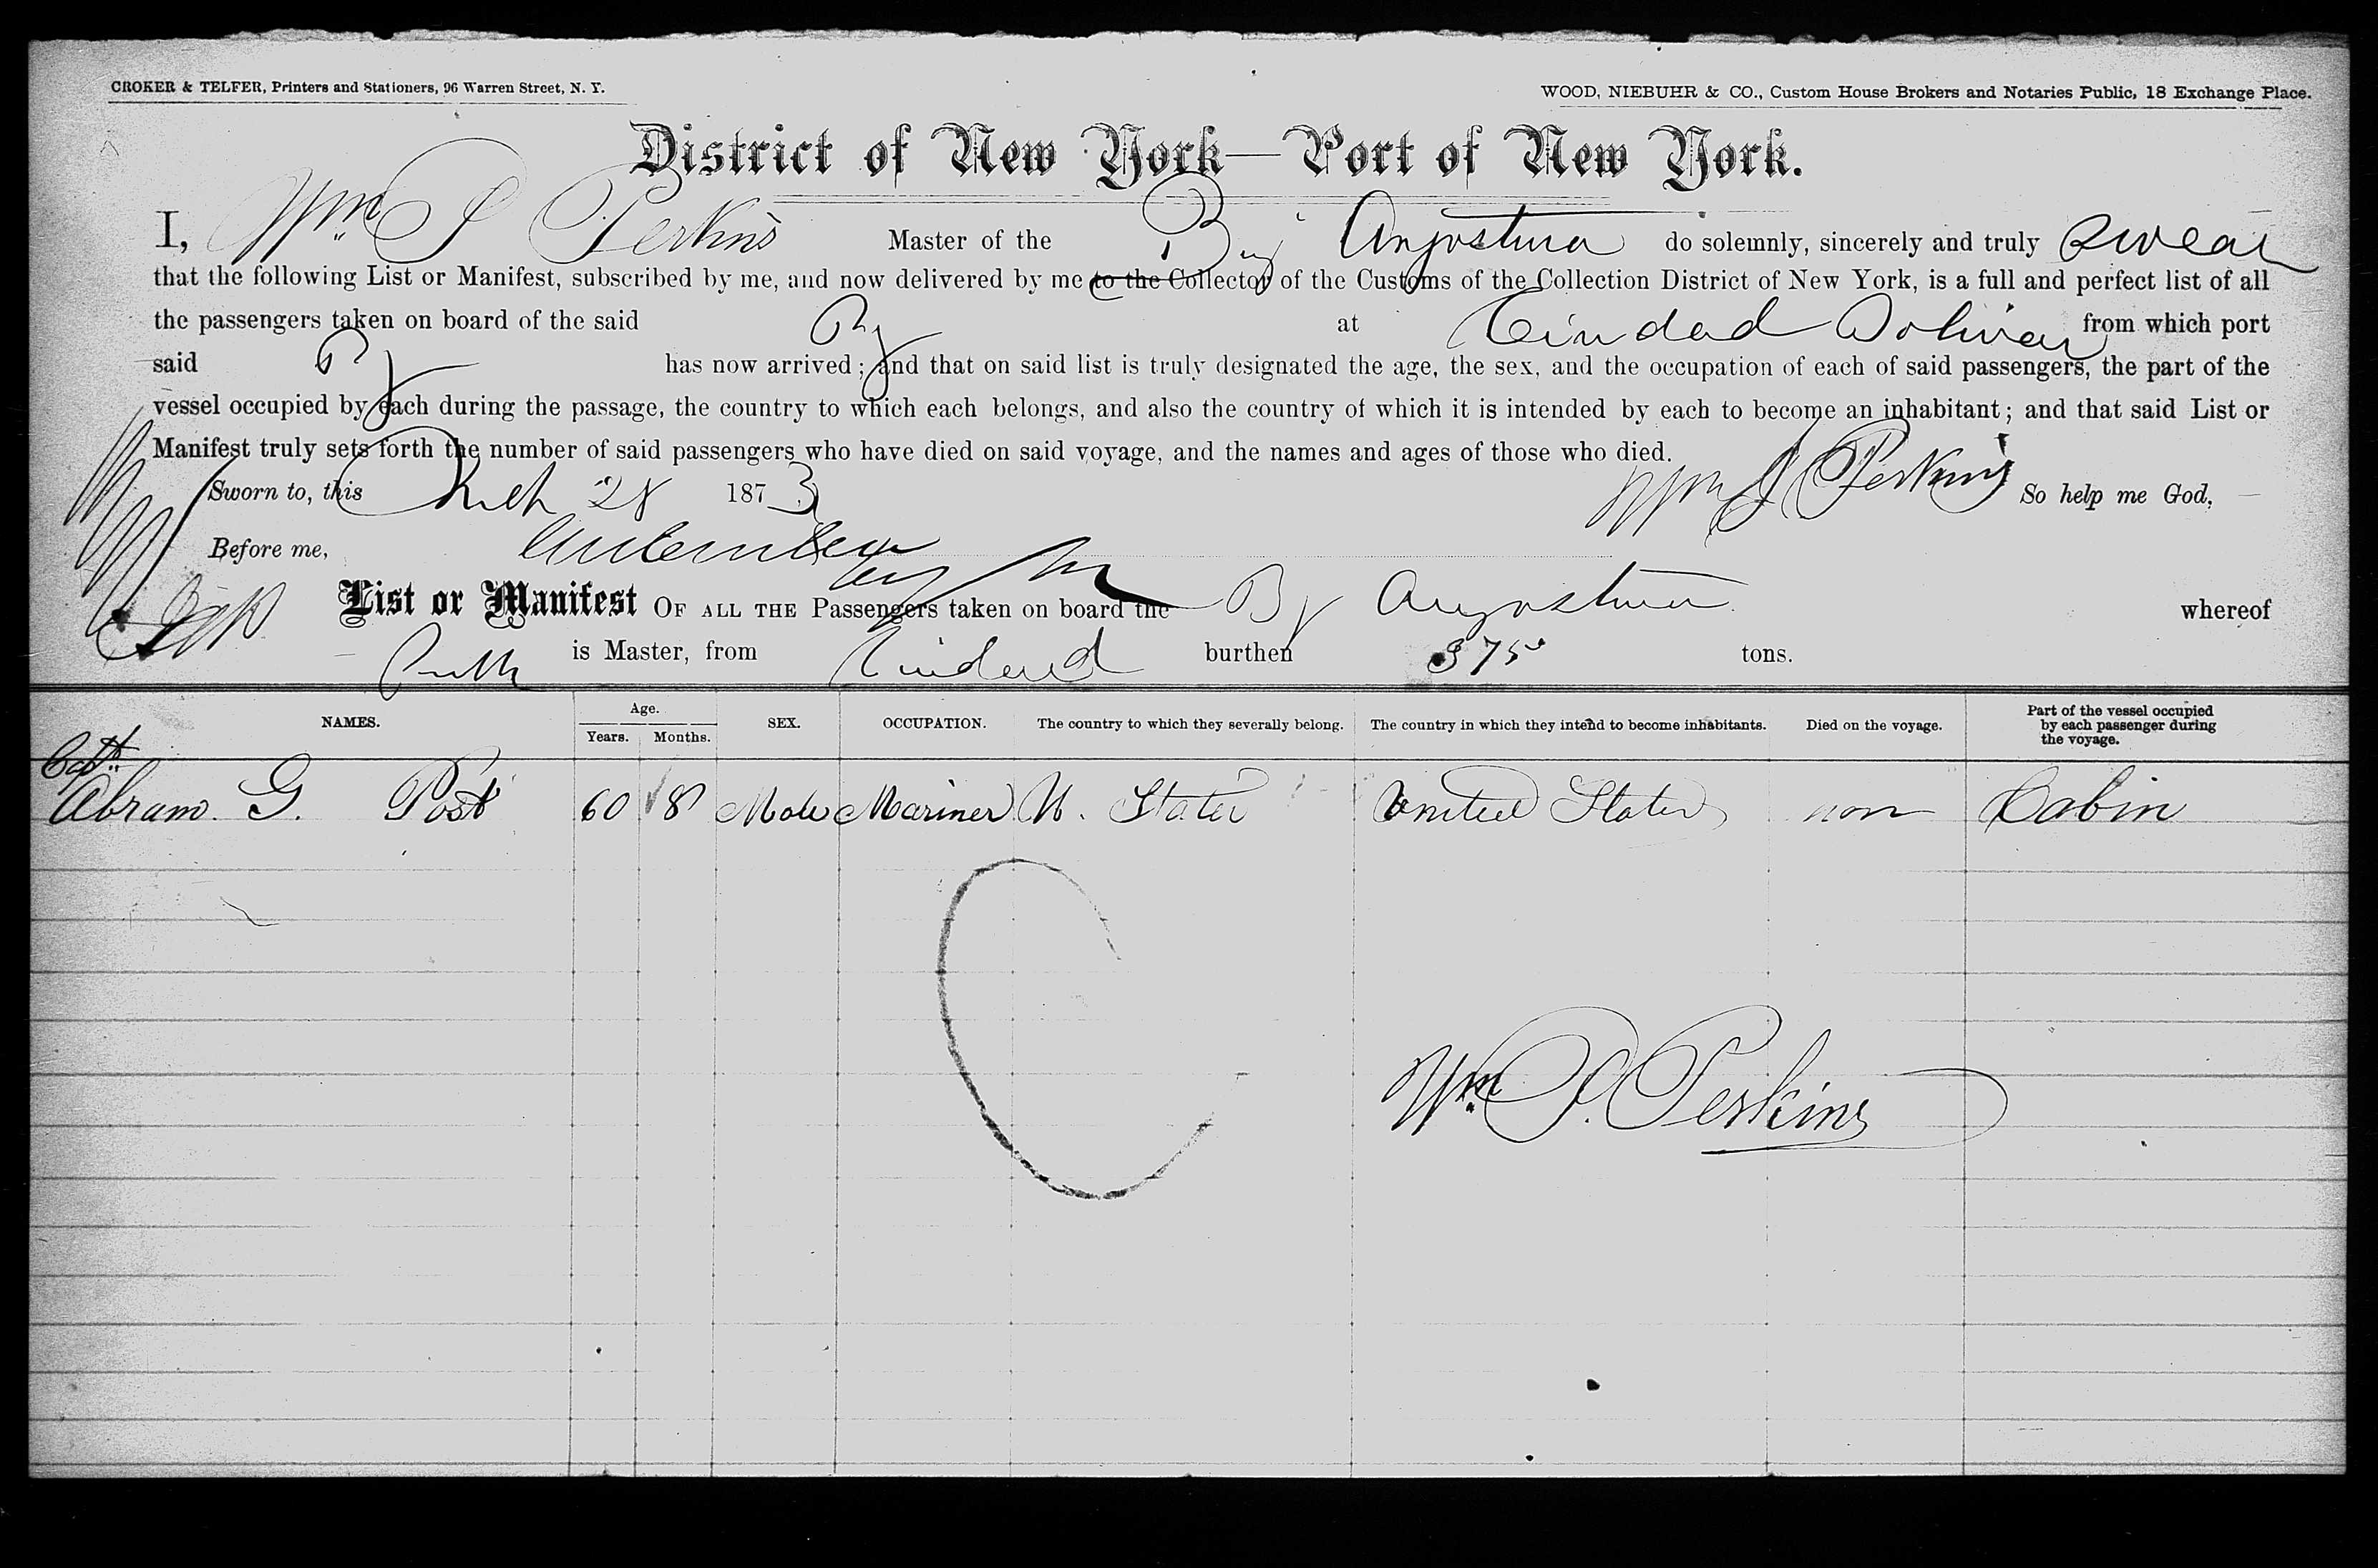 CROKER & TELFER, Printers and Stationers, 96 Warren Street, N. Y.
WOOD, NIEBUHR & CO., Custom House Brokers and Notaries Public, 18 Exchange Place.
District of New York—Port of New York.
I, Wm P Perkins Master of the Brig Angostura do solemnly, sincerely and truly swear
that the following List or Manifest, subscribed by me, and now delivered by me to the Collector of the Customs of the Collection District of New York, is a full and perfect list of all
the passengers taken on board of the said Bg at Ciudad Bolivar from which port
said Bg has now arrived; and that on said list is truly designated the age, the sex, and the occupation of each of said passengers, the part of the
vessel occupied by each during the passage, the country to which each belongs, and also the country of which it is intended by each to become an inhabitant; and that said List or
Manifest truly sets forth the number of said passengers who have died on said voyage, and the names and ages of those who died.
Sworn to, this Mch 28 1873 Wm P Perkins So help me God,
Before me,
List or Manifest OF ALL THE Passengers taken on board the Bg Angostura whereof
is Master, from Ciudad burthen 375 tons.
NAMES. Age. Years. Months. SEX. OCCUPATION. The country to which they severally belong. The country in which they intend to become inhabitants. Died on the voyage. Part of the vessel occupied by each passenger during the voyage.
Capt
Abram. G. Post 60 8 Male Mariner U. States United States non Cabin
Wm P. Perkins